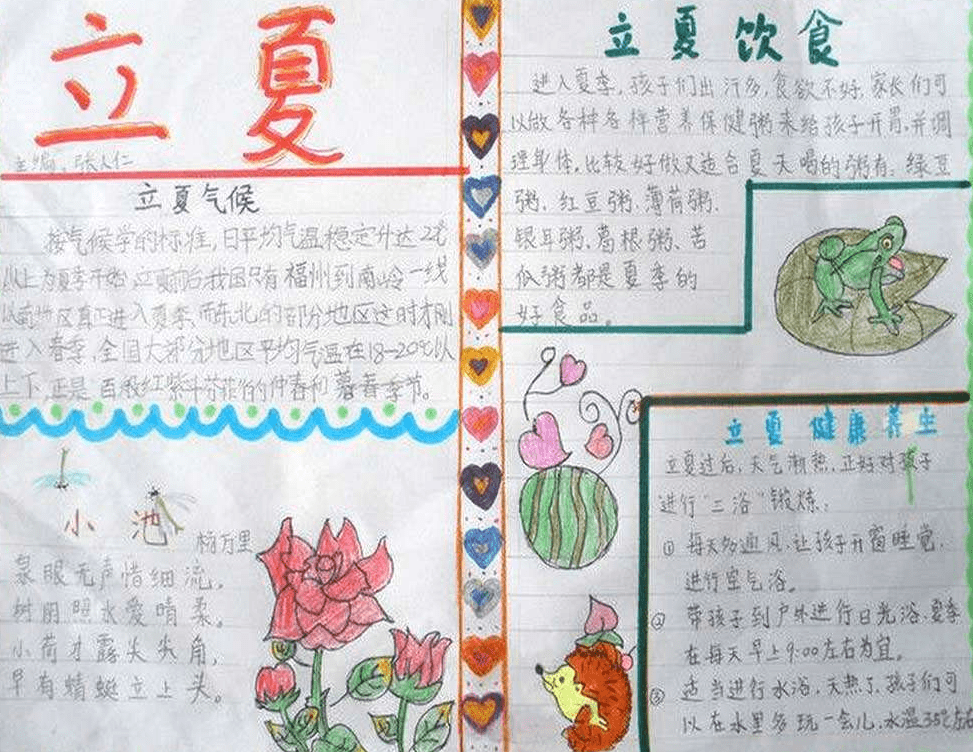 立夏
主编：张人仁
立夏气候
按气候学的标准，日平均气温稳定升达22℃
以上为夏季开始，立夏前后，我国只有福州到南岭一线
以南地区真正进入夏季，而东北的部分地区这时才刚
进入春季，全国大部分地区平均气温在18-20℃以
上下，正是百般红紫斗芳菲的仲春和暮春季节。
小池
杨万里
泉眼无声惜细流，
树阴照水爱晴柔。
小荷才露尖尖角，
早有蜻蜓立上头。
立夏饮食
进入夏季，孩子们出汗多，食欲不好，家长们可
以做各种各样营养保健粥来给孩子开胃，并调
理身体，比较好做又适合夏天喝的粥有：绿豆
粥、红豆粥、薄荷粥、
银耳粥、葛根粥、苦
瓜粥都是夏季的
好食品。
立夏健康养生
立夏过后，天气渐热，正好对孩子
进行"三浴"锻炼：
① 每天多通风，让孩子开窗睡觉，
进行空气浴。
② 带孩子到户外进行日光浴，夏季
在每天早上9:00左右为宜。
③ 适当进行水浴，天热了，孩子们可
以在水里多玩一会儿，水温35℃左右